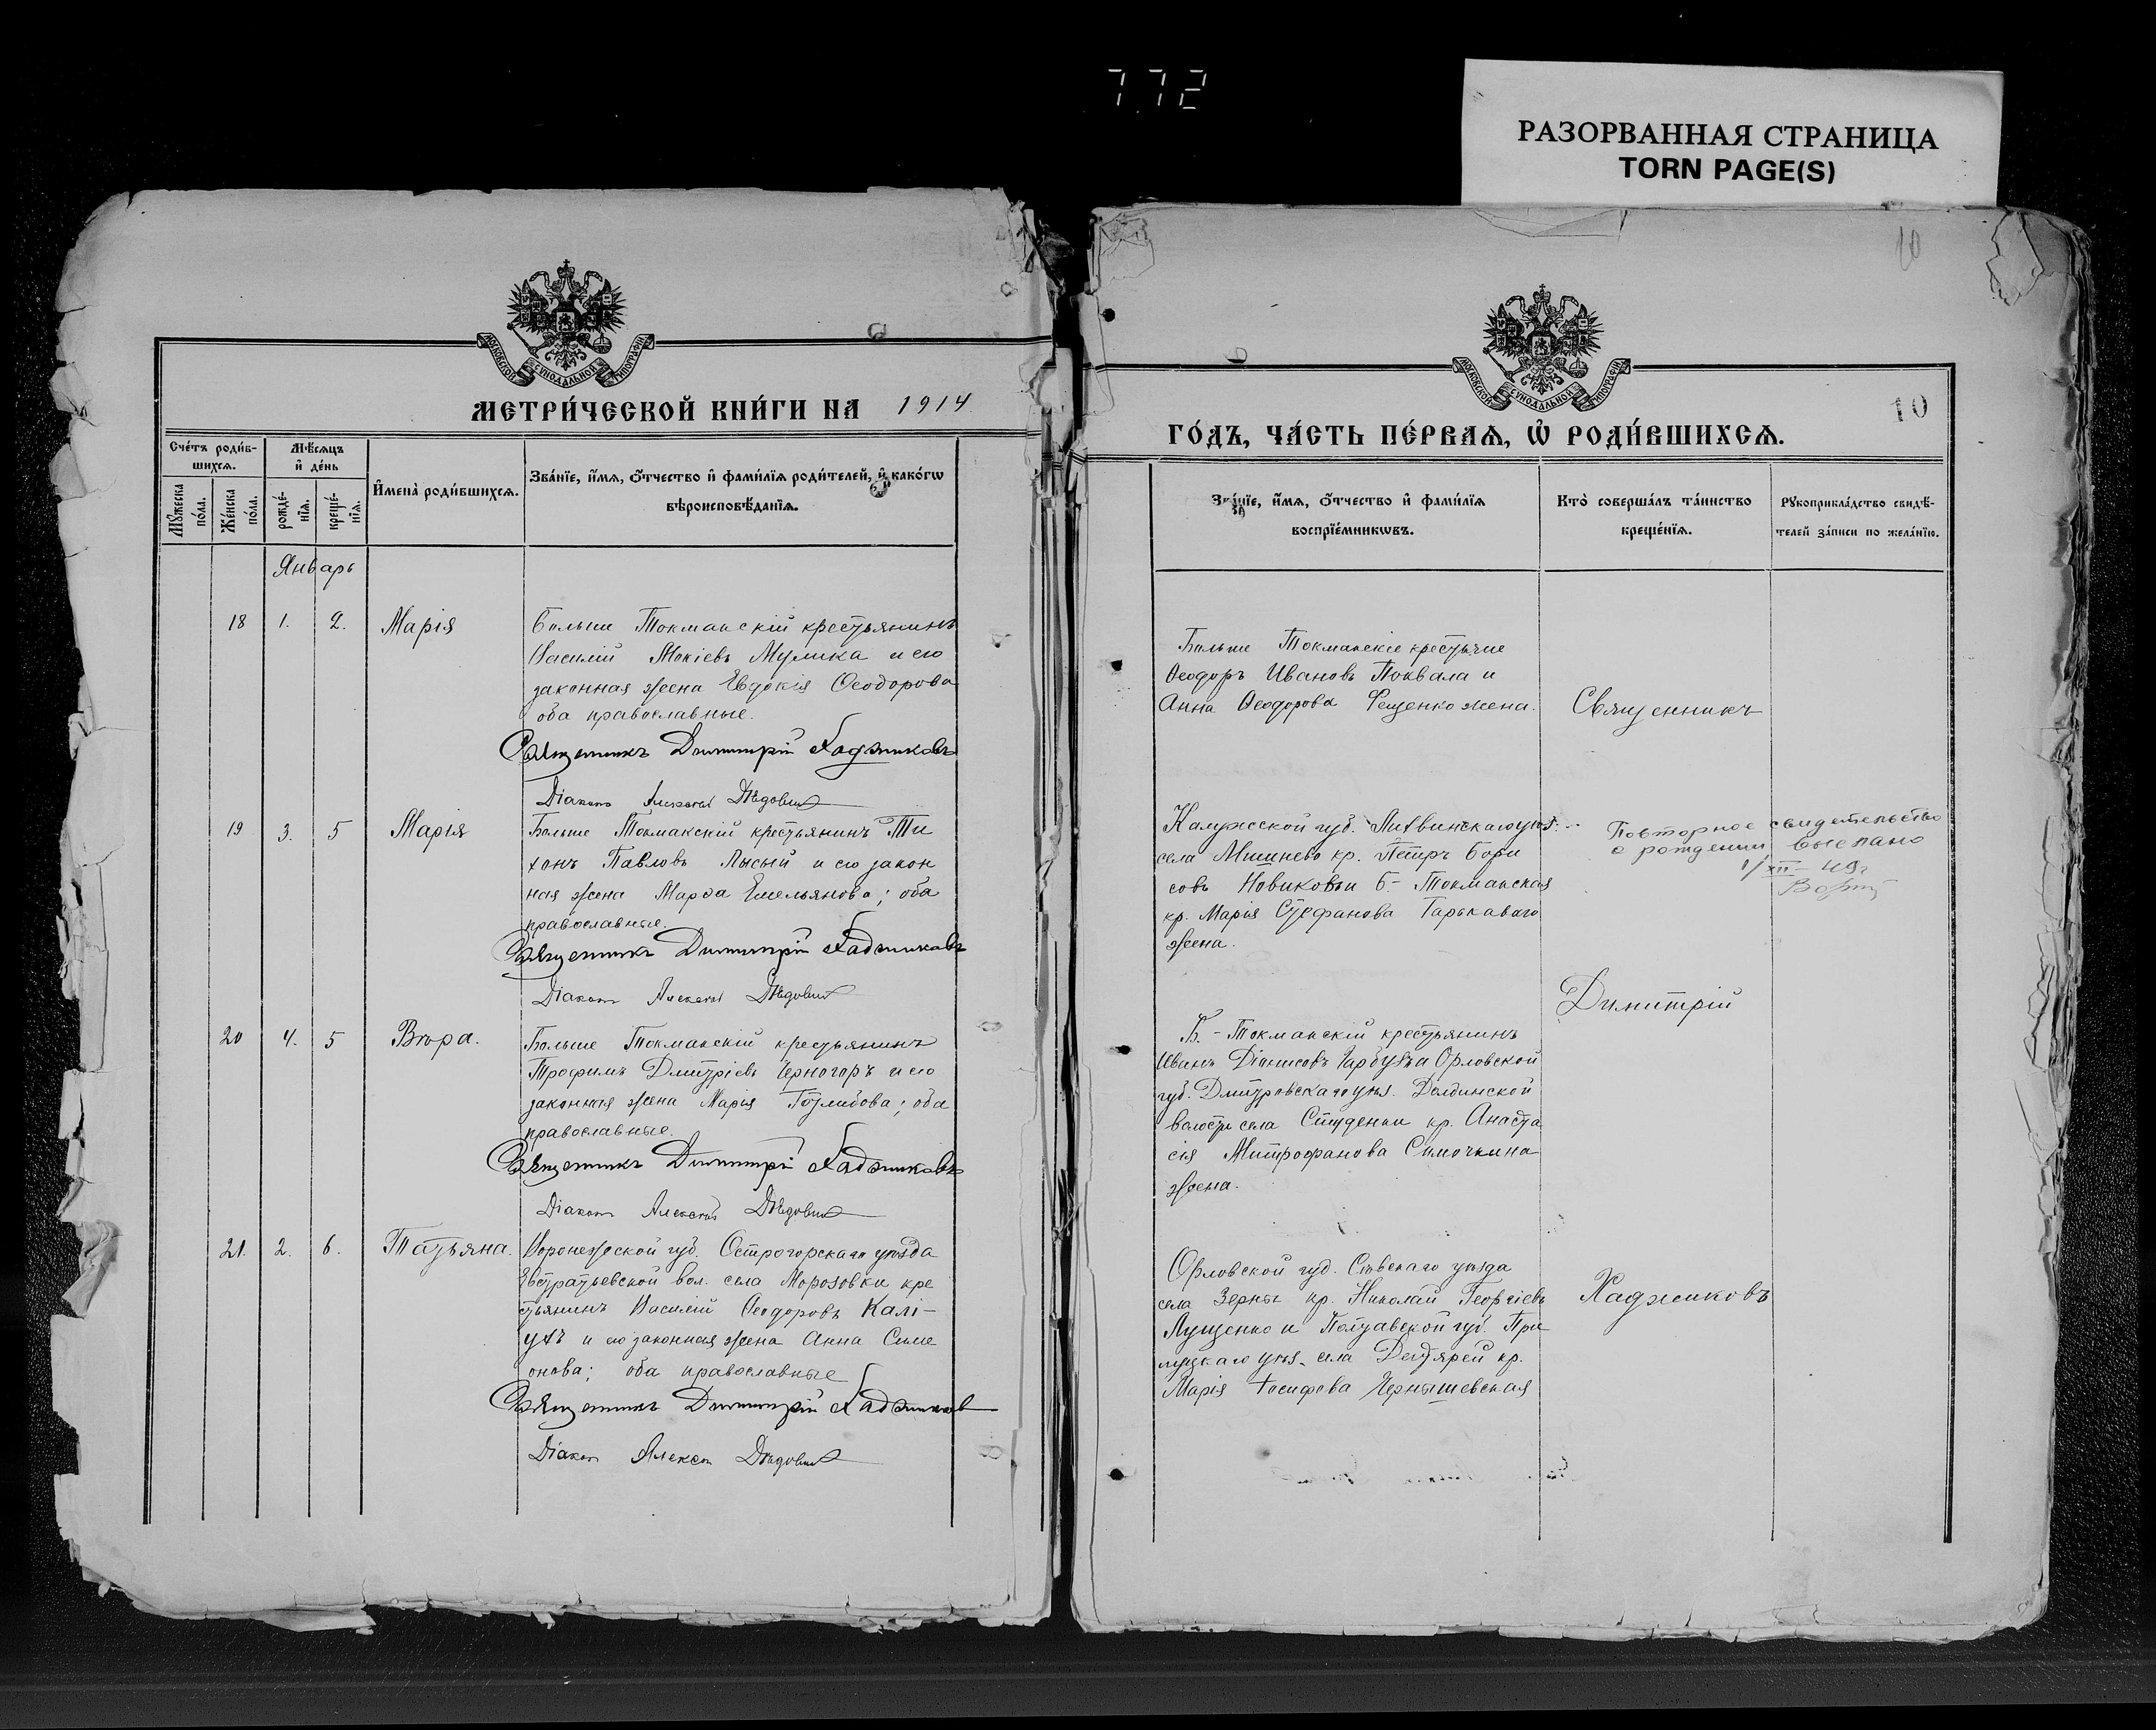 772
РАЗОРВАННАЯ СТРАНИЦА
TORN PAGE(S)
10
МОСКОВСКОЙ СѴНОДАЛЬНОЙ ТИПОГРАФІИ
МЕТРИ́ЧЕСКОЙ КНИ́ГИ НА 1914
Сче́тъ роди́в-
шихсѧ.
Мꙋ́жеска по́ла.
Же́нска по́ла.
Мѣ́сѧцъ
и҆ де́нь
рожде́-
нїѧ.
креще́-
нїѧ.
И҆мена̀ роди́вшихсѧ.
Зва́нїе, и҆́мѧ, ѻ҆́тчество и҆ фами́лїѧ роди́телей, и҆ како́гѡ
вѣроисповѣ́данїѧ.
Январь
18 1. 2. Марія
Больше Токмакскій крестьянинъ
Василій Мокіевъ Мулика и его
законная жена Евдокія Ѳеодорова
оба православные.
Священникъ Димитрій Хаджиковъ
Діаконъ Алексѣй Дѣдовичъ
19 3. 5 Марія
Больше Токмакскій крестьянинъ Ти
хонъ Павловъ Лысый и его закон
ная жена Марѳа Емельянова; оба
православные.
Священникъ Димитрій Хаджиковъ
Діаконъ Алексѣй Дѣдовичъ
20 4. 5 Вѣра.
Больше Токмакскій крестьянинъ
Трофимъ Дмитріевъ Черногоръ и его
законная жена Марія Готлибова; оба
православные.
Священникъ Димитрій Хаджиковъ
Діаконъ Алексѣй Дѣдовичъ
21. 2. 6. Татьяна.
Воронежской губ. Острогорскаго уѣзда
Евстратьевской вол. села Морозовки кре
стьянинъ Василій Ѳеодоровъ Калі-
и его законная жена Анна Симе
онова; оба православные
Священникъ Димитрій Хаджиковъ
Діаконъ Алексѣй Дѣдовичъ
МОСКОВСКОЙ СѴНОДАЛЬНОЙ ТИПОГРАФІИ
10
ГО́ДЪ, ЧА́СТЬ ПЕ́РВАѦ, Ѡ҆ РОДИ́ВШИХСѦ.
Зва́нїе, и҆́мѧ, ѻ҆́тчество и҆ фами́лїѧ
воспрїе́мникѡвъ.
Кто̀ соверша́лъ та́инство
креще́нїѧ.
Рꙋкоприкла́дство свидѣ́-
телей за́писи по жела́нїю.
Больше Токмакскіе крестьяне
Ѳеодоръ Ивановъ Похвала и
Анна Ѳеодорова Фещенко жена.
Калужской губ. Лихвинскаго уѣз.
села Мишнево кр. Петръ Бори
совъ Новиковъ и Б.-Токмакская
кр. Марія Стефанова Гаркаваго
жена.
Б.-Токмакскій крестьянинъ
Иванъ Діонисовъ Гарбузъ и Орловской
губ. Дмитровскаго уѣз. Долбинской
волости села Студенки кр. Анаста
сія Митрофанова Симочкина
жена.
Орловской губ. Сѣвскаго уѣзда
села Зерны кр. Николай Георгіевъ
Лущенко и Полтавской губ. При
луцкаго уѣз. села Дегтярей кр.
Марія Іосифова Чернышевская
Священникъ
Димитрій
Хаджиковъ
Повторное свидетельство
о рождении выслано
1/XII-49г